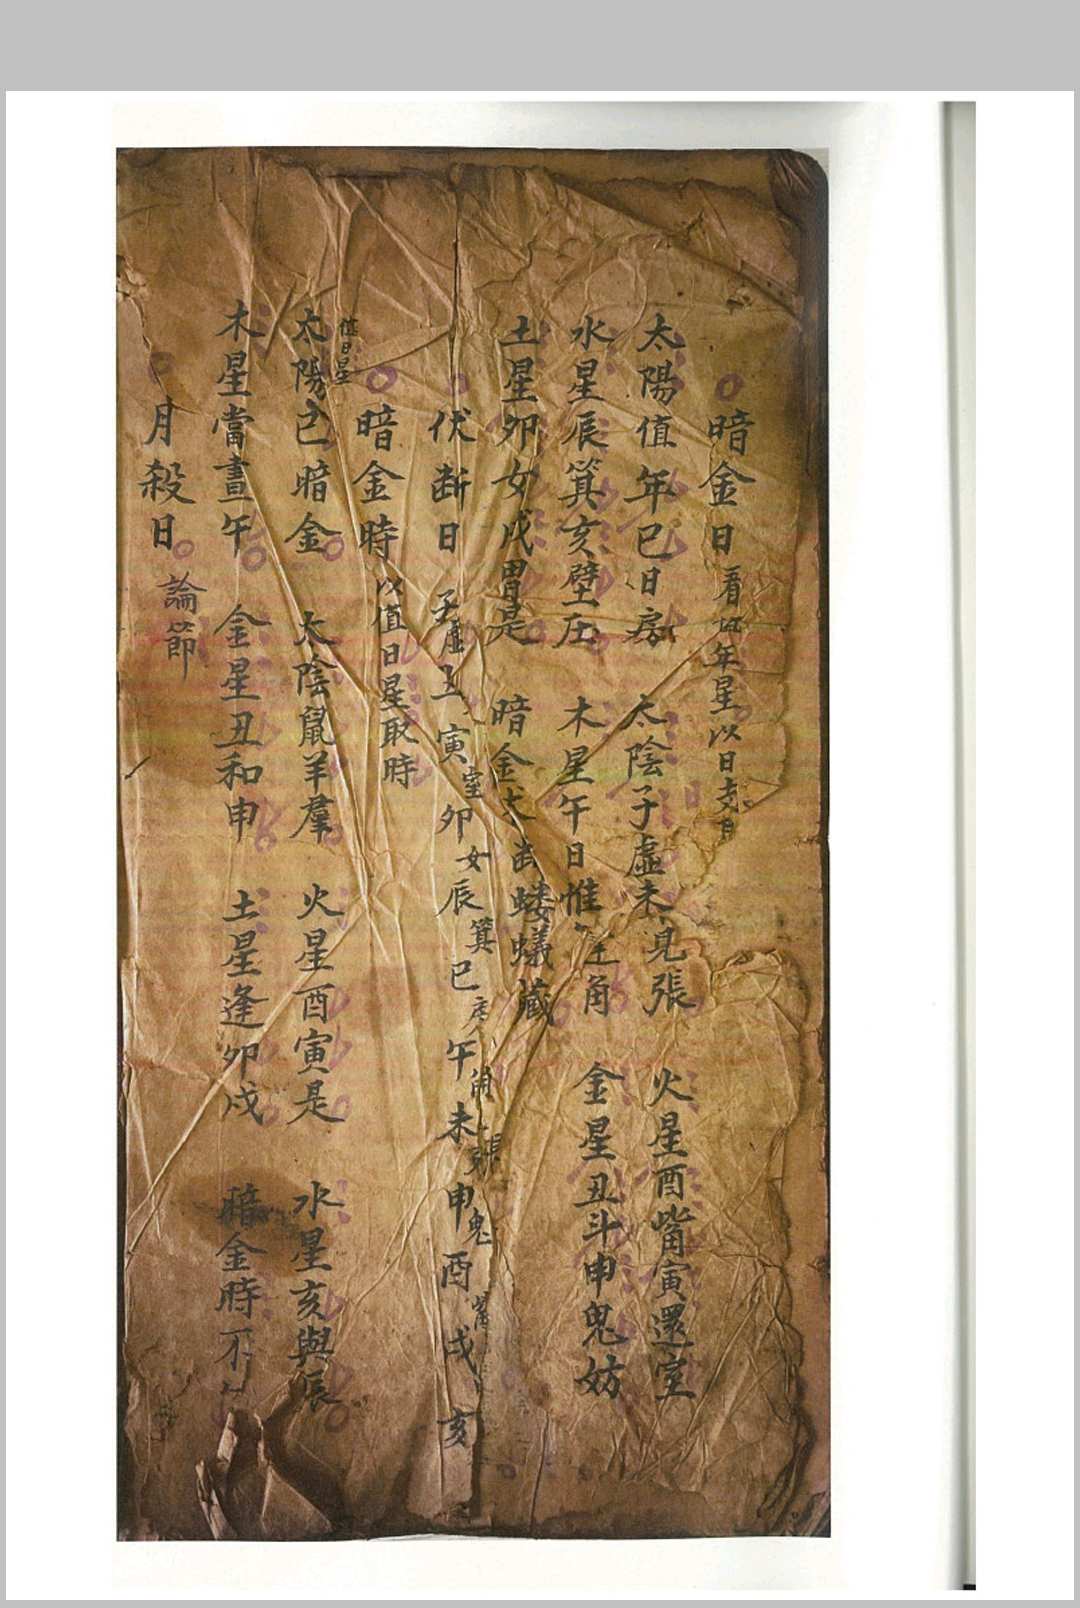 暗金日 看值年星以日支
太陽值年巳日房 太陰子虛未見張 火星酉觜寅還室
水星辰箕亥壁庄 木星午日惟 角 金星丑斗申鬼妨
土星卯女戌胃是 暗金 斷螻蟻藏
伏断日 子虛丑 寅室卯女辰箕巳房午角未張申鬼酉觜戌 亥
暗金時 以值日星取時
值日星
太陽巳暗金 太陰鼠羊羣 火星酉寅是 水星亥與辰
木星當晝午 金星丑和申 土星逢卯戌 暗金時不
月殺日 論節